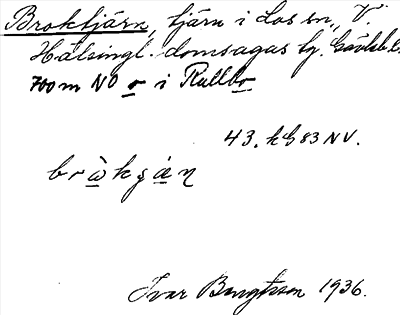 Broktjärn, tjärn i Los sn., V.
Hälsingl. domsagas tg. Gävleb. l.
700 m NO o i Rullbo
43. k G 83 NV.
bròkçạ̈n
Ivar Bengtsson 1936.